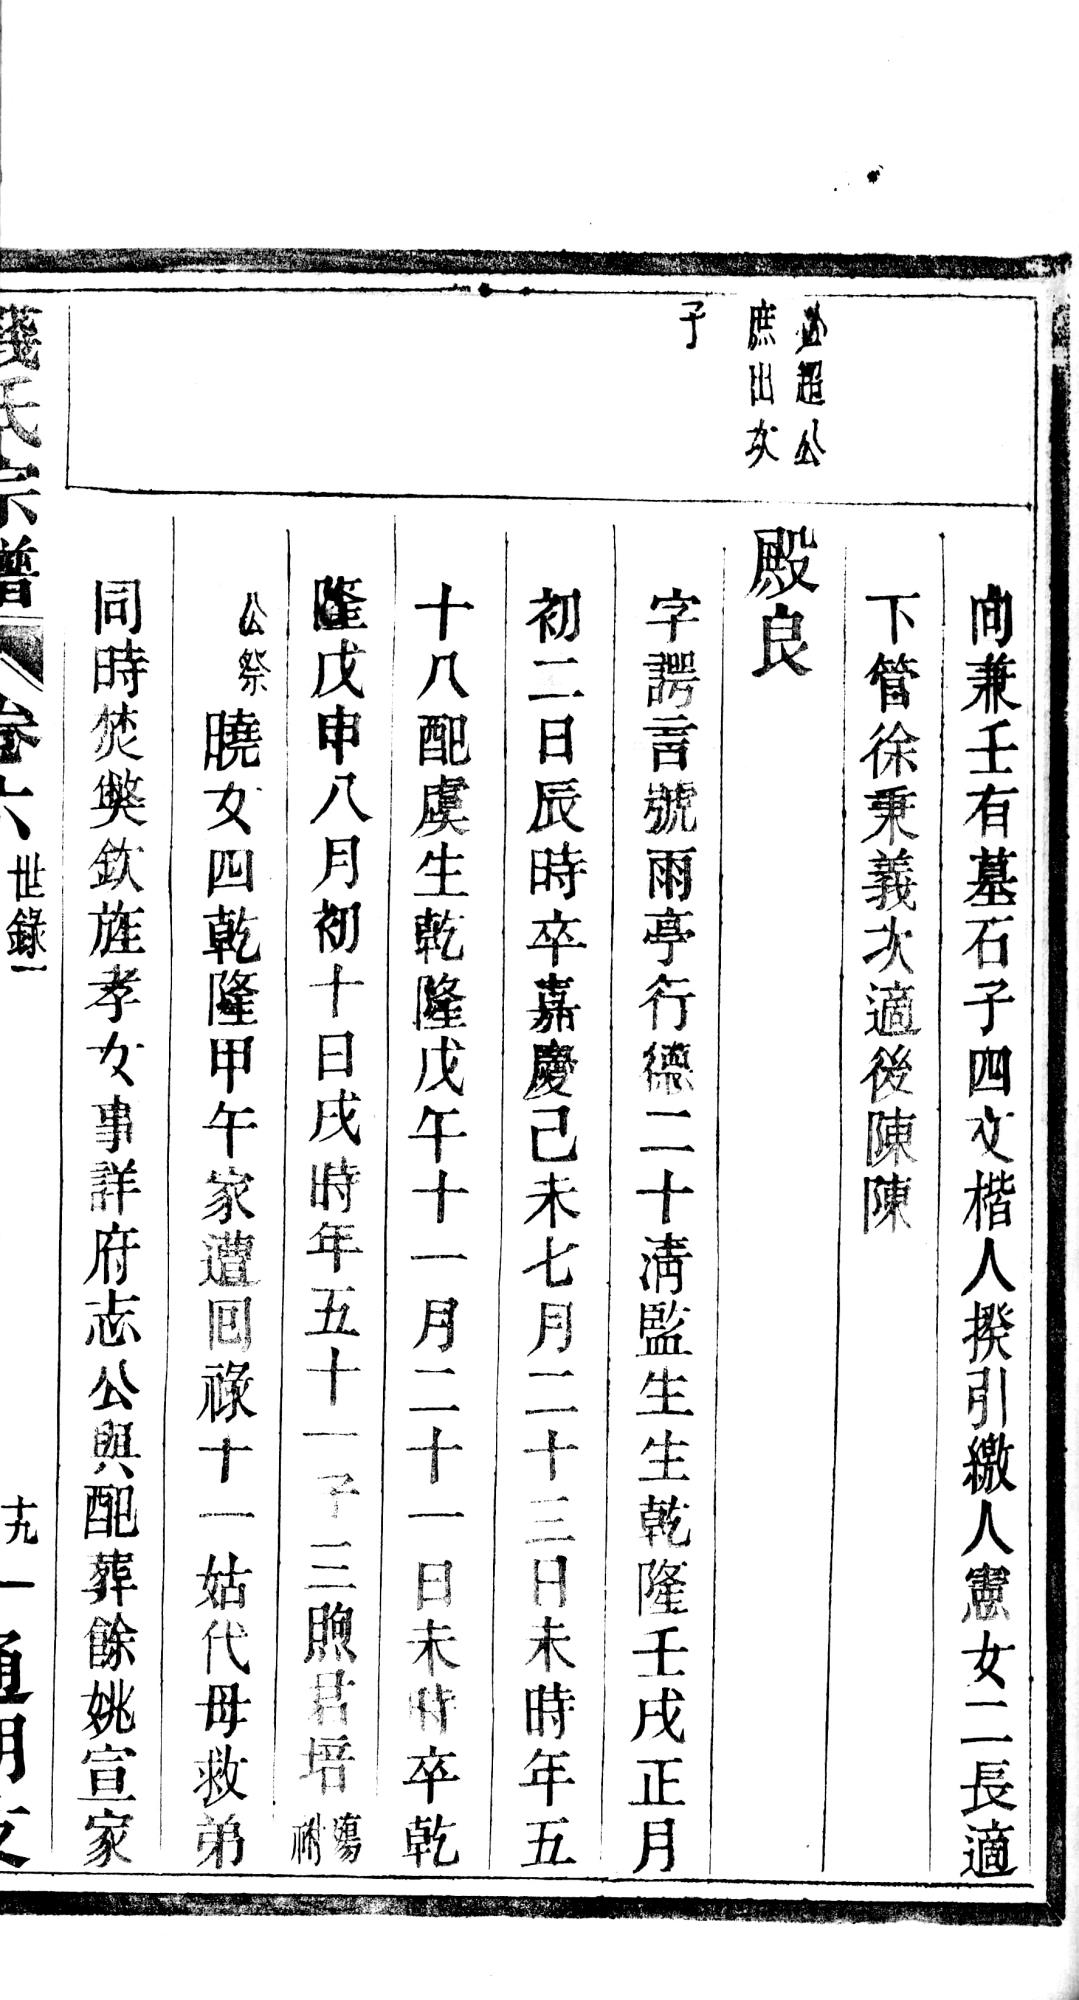 向兼壬有墓石子四文楷人揆引繳人憲女二長適
下管徐秉義次適後陳陳
超公
庶出次
子
殿良
字諤言號雨亭行德二十淸監生生乾隆壬戌正月
初二日辰時卒嘉慶己未七月二十三日未時年五
十八配虞生乾隆戊午十一月二十一日未時卒乾
隆戊申八月初十日戌時年五十一子三煦君培殤
祔
公祭
曉女四乾隆甲午家遭回祿十一姑代母救弟
同時焚斃欽旌孝女事詳府志公與配葬餘姚宣家
錢氏宗譜
卷六
世錄一
十九
通明支